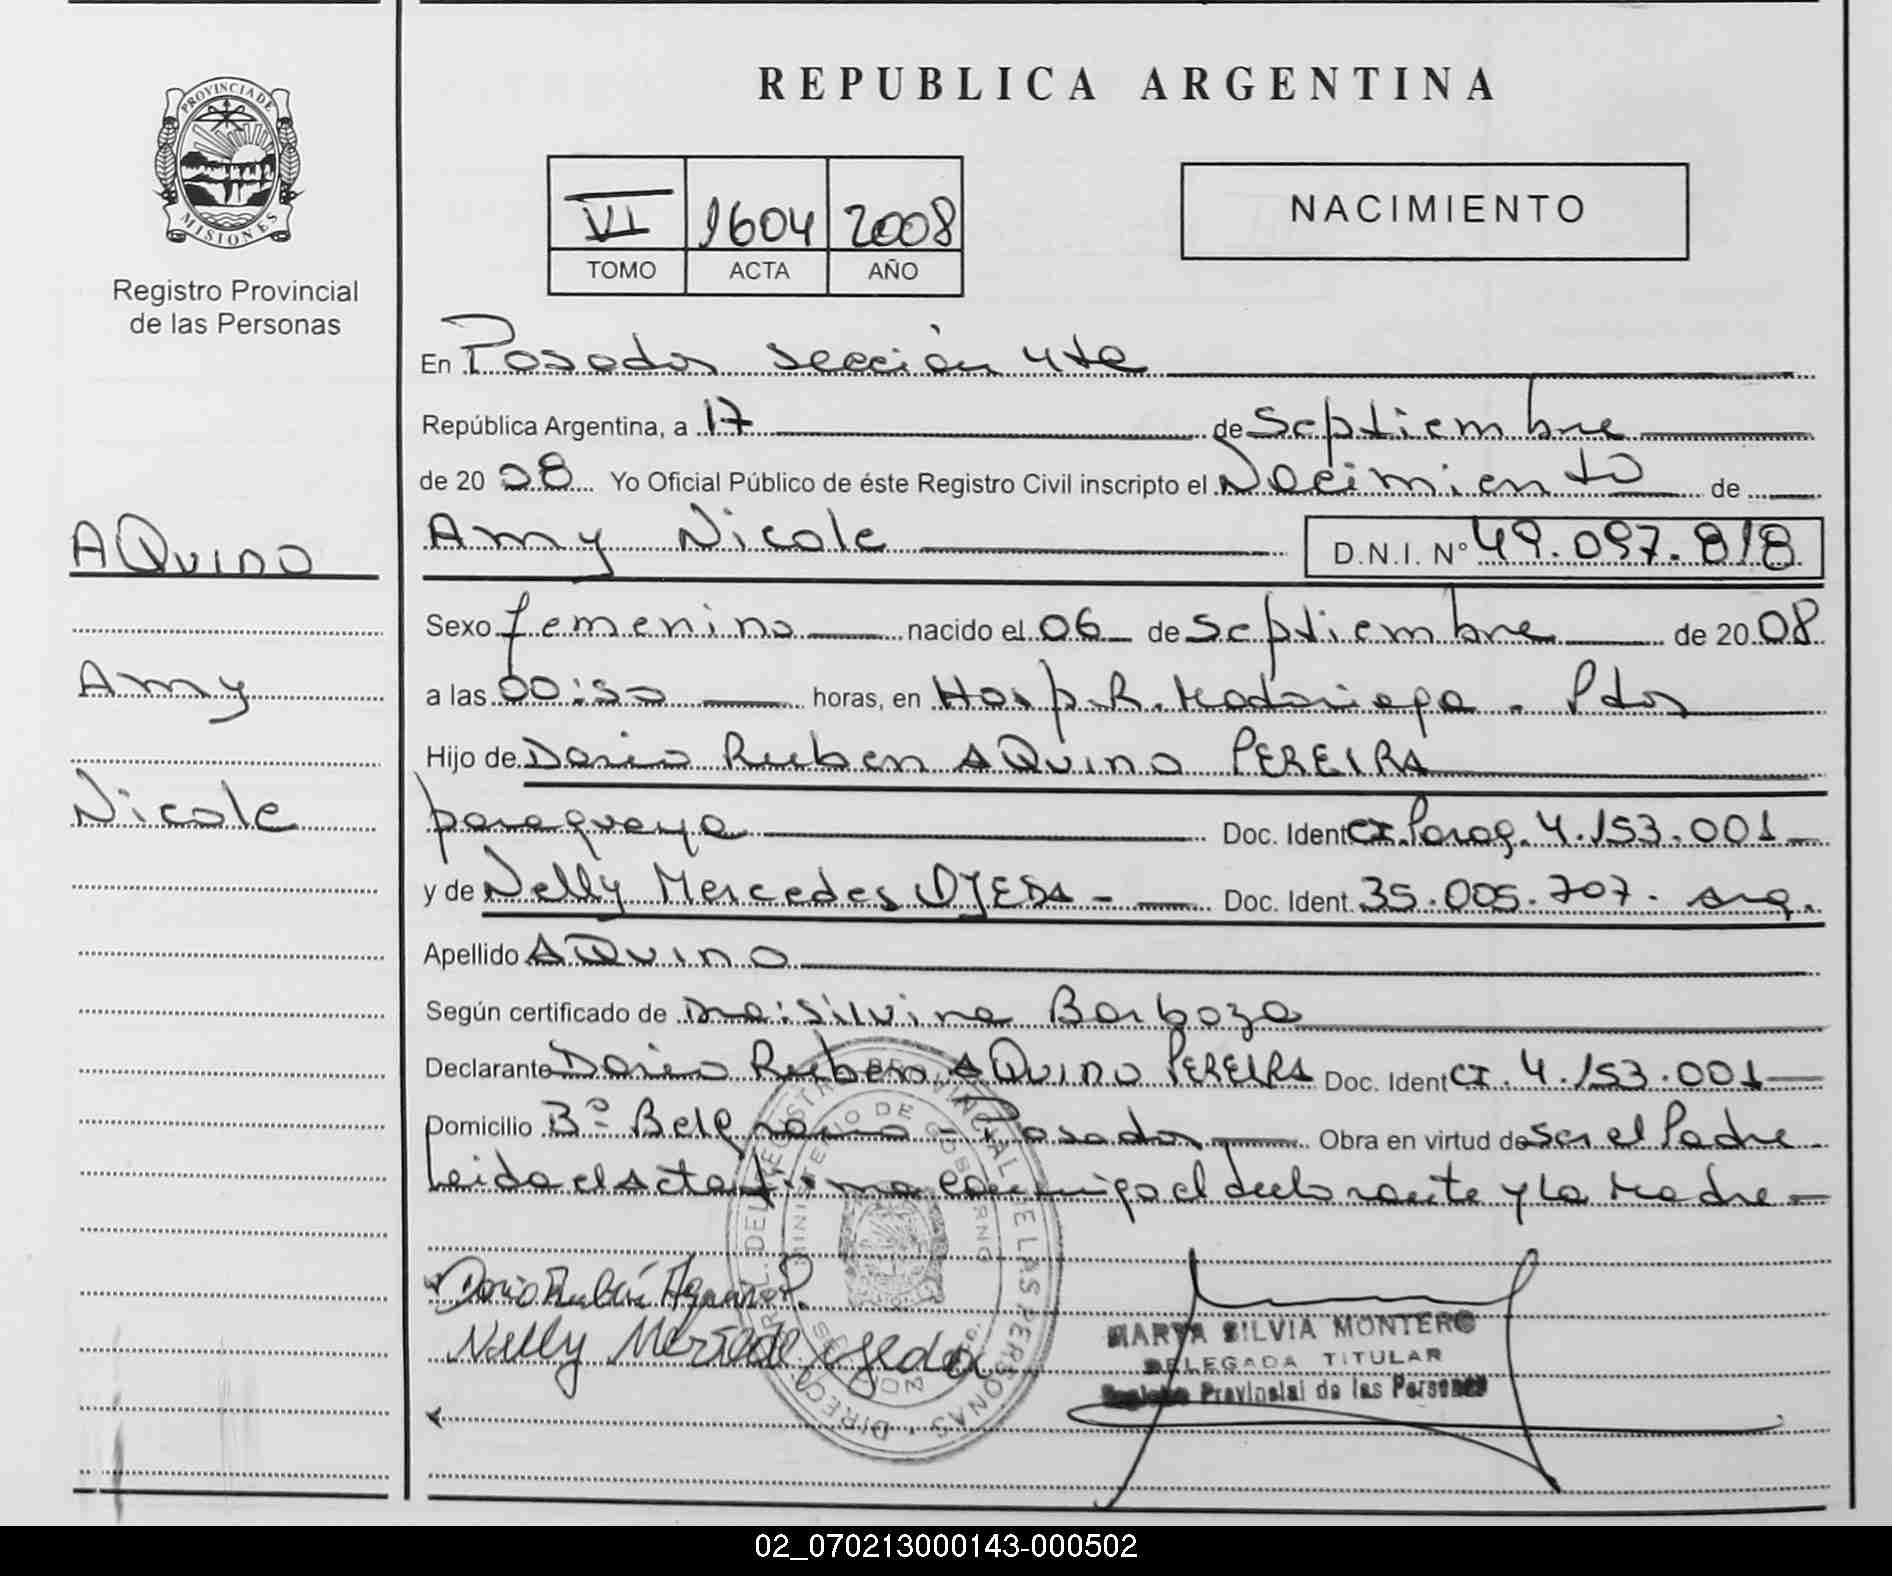 PROVINCIA DE
MISIONES
Registro Provincial
de las Personas
AQuino
Amy
Nicole
REPUBLICA ARGENTINA
VI 1604 2008
TOMO ACTA AÑO
NACIMIENTO
En Posadas sección 4ta
República Argentina, a 17 de Septiembre
de 20 08 Yo Oficial Público de éste Registro Civil inscripto el Nacimiento de
Amy Nicole D.N.I. Nº 49.097.818
Sexo femenino nacido el 06 de Septiembre de 20 08
a las 00:50 horas, en Hosp. R. Madariaga - Pdas
Hijo de Dario Ruben AQuino PEREIRA
paraguaya Doc. Ident CI. Parag. 4.153.001
y de Nelly Mercedes OJEDA - Doc. Ident. 35.005.707. arg.
Apellido AQuino
Según certificado de Dra: Silvina Barboza
Declarante Dario Ruben AQuino PEREIRA Doc. Ident CI. 4.153.001
Domicilio Bº Belgrano - Posadas Obra en virtud de Ser el Padre
Leida el Acta firma conmigo el declarante y la Madre -
Dario Rubén Aquino P.
Nelly Mercedes Ojeda
MARTA SILVIA MONTERO
DELEGADA TITULAR
Registro Provincial de las Personas
02_070213000143-000502